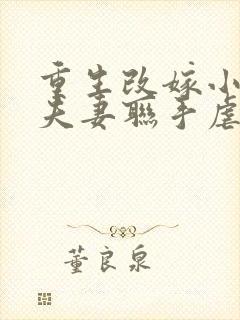 重生改嫁小
夫妻聯手虐
董良泉